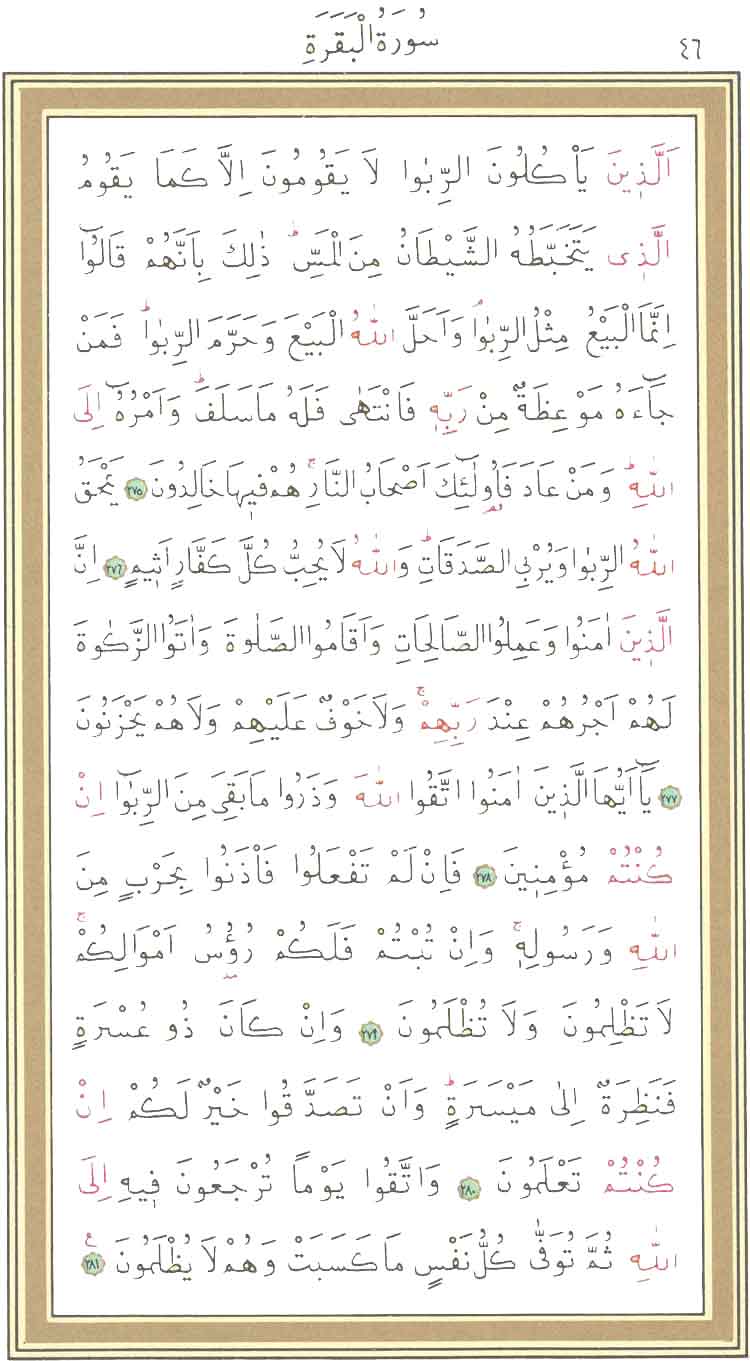 سُورَةُ الْبَقَرَةِ ٤٦
اَلَّذِينَ يَأْكُلُونَ الرِّبٰوا لَا يَقُومُونَ اِلَّا كَمَا يَقُومُ
الَّذِى يَتَخَبَّطُهُ الشَّيْطَانُ مِنَ الْمَسِّۜ ذٰلِكَ بِاَنَّهُمْ قَالُٓوا
اِنَّمَا الْبَيْعُ مِثْلُ الرِّبٰواۢ وَاَحَلَّ اللّٰهُ الْبَيْعَ وَحَرَّمَ الرِّبٰواۜ فَمَنْ
جَٓاءَهُ مَوْعِظَةٌ مِنْ رَبِّهٖ فَانْتَهٰى فَلَهُ مَا سَلَفَۜ وَاَمْرُهُٓ اِلَى
اللّٰهِۜ وَمَنْ عَادَ فَاُولٰٓئِكَ اَصْحَابُ النَّارِۚ هُمْ فٖيهَا خَالِدُونَ ٢٧٥ يَمْحَقُ
اللّٰهُ الرِّبٰوا وَيُرْبِى الصَّدَقَاتِۜ وَاللّٰهُ لَا يُحِبُّ كُلَّ كَفَّارٍ اَثٖيمٍ ٢٧٦ اِنَّ
الَّذٖينَ اٰمَنُوا وَعَمِلُوا الصَّالِحَاتِ وَاَقَامُوا الصَّلٰوةَ وَاٰتَوُا الزَّكٰوةَ
لَهُمْ اَجْرُهُمْ عِنْدَ رَبِّهِمْۚ وَلَا خَوْفٌ عَلَيْهِمْ وَلَا هُمْ يَحْزَنُونَ
٢٧٧ يَٓا اَيُّهَا الَّذٖينَ اٰمَنُوا اتَّقُوا اللّٰهَ وَذَرُوا مَا بَقِىَ مِنَ الرِّبٰٓوا اِنْ
كُنْتُمْ مُؤْمِنٖينَ ٢٧٨ فَاِنْ لَمْ تَفْعَلُوا فَأْذَنُوا بِحَرْبٍ مِنَ
اللّٰهِ وَرَسُولِهٖۚ وَاِنْ تُبْتُمْ فَلَكُمْ رُؤُسُ اَمْوَالِكُمْۚ
لَا تَظْلِمُونَ وَلَا تُظْلَمُونَ ٢٧٩ وَاِنْ كَانَ ذُو عُسْرَةٍ
فَنَظِرَةٌ اِلٰى مَيْسَرَةٍۜ وَاَنْ تَصَدَّقُوا خَيْرٌ لَكُمْ اِنْ
كُنْتُمْ تَعْلَمُونَ ٢٨٠ وَاتَّقُوا يَوْمًا تُرْجَعُونَ فٖيهِ اِلَى
اللّٰهِ ثُمَّ تُوَفّٰى كُلُّ نَفْسٍ مَا كَسَبَتْ وَهُمْ لَا يُظْلَمُونَ ع ٢٨١